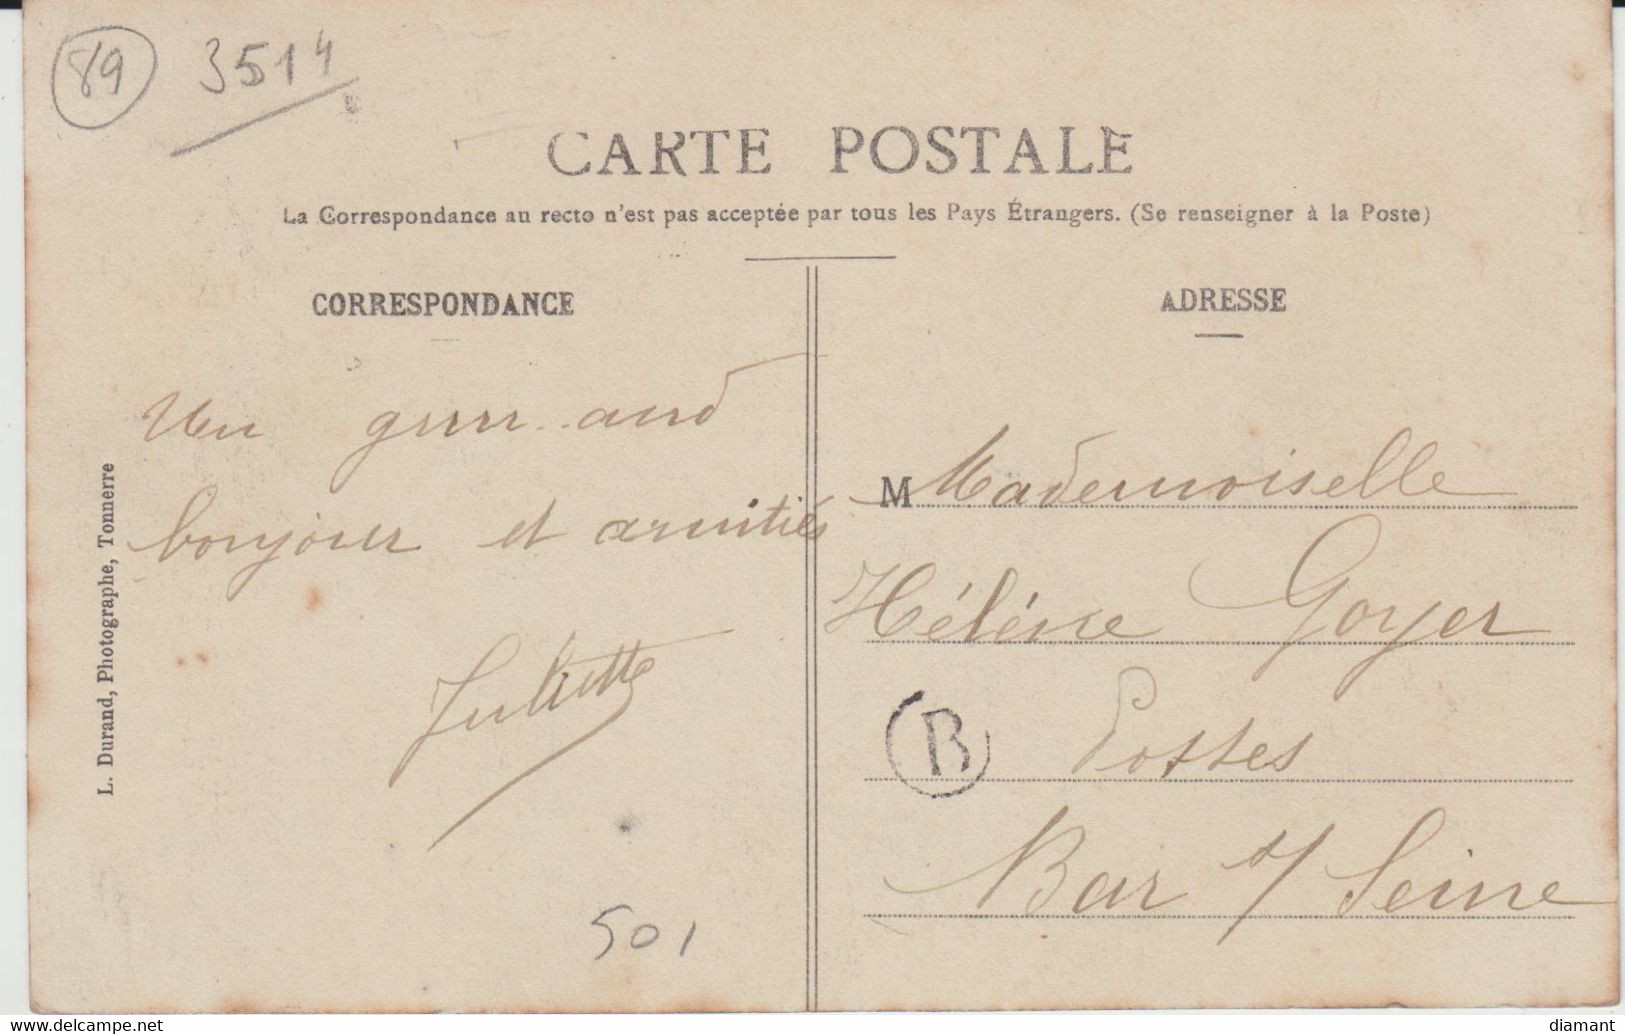 89 3514
CARTE POSTALE
La Correspondance au recto n'est pas acceptée par tous les Pays Étrangers. (Se renseigner à la Poste)
CORRESPONDANCE
Un grrrr..and
bonjour et amitiés
Juliette
501
L. Durand, Photographe, Tonnerre
ADRESSE
M Mademoiselle
Hélène Goyer
B Postes
Bar s/ Seine
www.delcampe.net
diamant